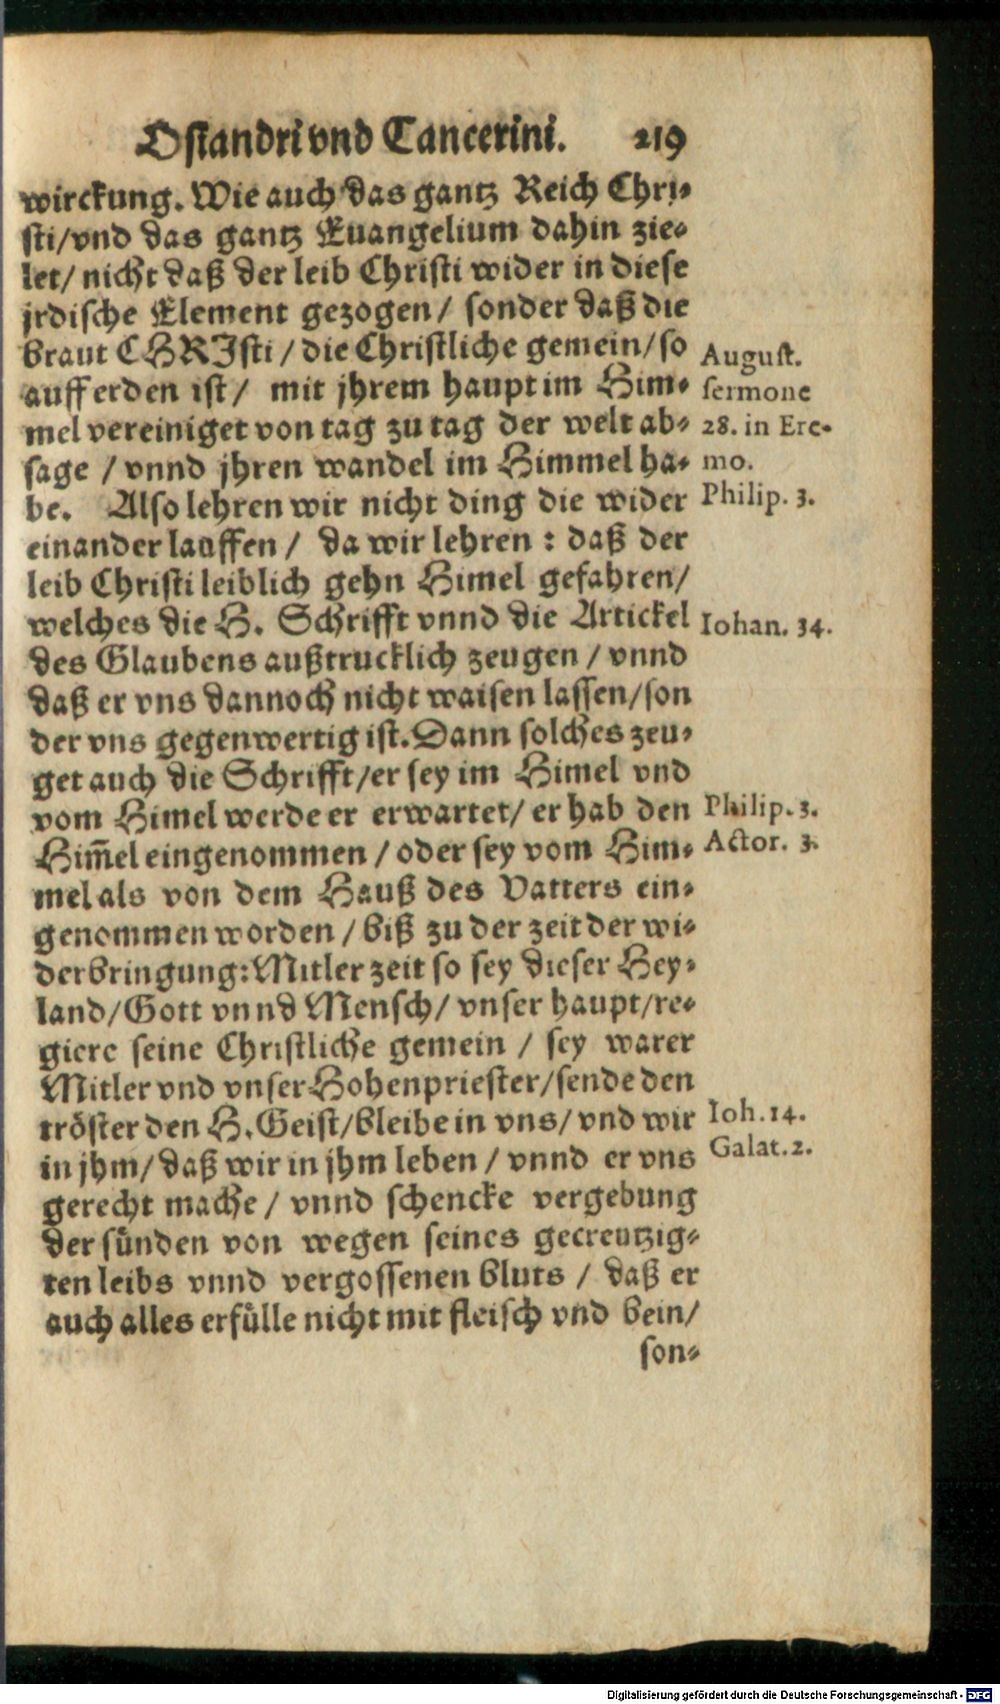 Osiandri vnd Cancerini. 219
wirckung. Wie auch das gantz Reich Chri⸗
sti/vnd das gantz Euangelium dahin zie⸗
let/ nicht daß der leib Christi wider in diese
jrdische Element gezogen/ sonder daß die
braut CHRIsti/ die Christliche gemein/so
auff erden ist/ mit jhrem haupt im Him⸗
mel vereiniget von tag zu tag der welt ab⸗
sage /vnnd jhren wandel im Himmel ha⸗
be. Also lehren wir nicht ding die wider
einander lauffen/ da wir lehren: daß der
leib Christi leiblich gehn Himel gefahren/
welches die H. Schrifft vnnd die Artickel
des Glaubens außtrucklich zeugen/ vnnd
daß er vns dannoch nicht waisen lassen/son
der vns gegenwertig ist. Dann solches zeu⸗
get auch die Schrifft/er sey im Himel vnd
vom Himel werde er erwartet/ er hab den
Him̄el eingenommen/ oder sey vom Him⸗
mel als von dem Hauß des Vatters ein⸗
genommen worden/ biß zu der zeit der wi⸗
derbringung: Mitler zeit so sey dieser Hey⸗
land/Gott vnnd Mensch/ vnser haupt/re⸗
giere seine Christliche gemein/ sey warer
Mitler vnd vnser Hohenpriester/sende den
tröster den H. Geist/bleibe in vns/ vnd wir
in jhm/ daß wir in jhm leben/ vnnd er vns
gerecht mache/ vnnd schencke vergebung
der sünden von wegen seines gecreutzig⸗
ten leibs vnnd vergossenen bluts/ daß er
auch alles erfülle nicht mit fleisch vnd bein/
son⸗
August.
sermone
28. in Ere⸗
mo.
Philip. 3.
Iohan. 34.
Philip. 3.
Actor. 3.
Ioh. 14.
Galat. 2.
Digitalisierung gefördert durch die Deutsche Forschungsgemeinschaft - DFG